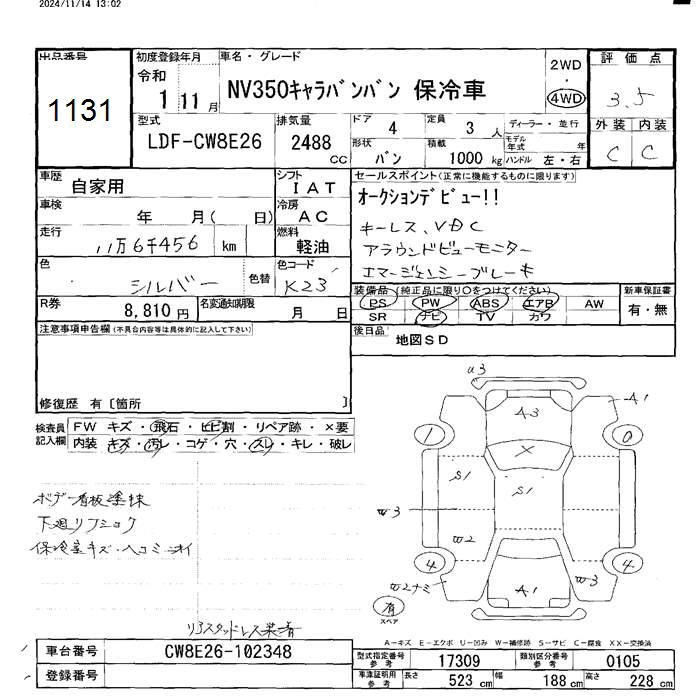 2024/11/14 13:02
出品番号 1131
初度登録年月 令和 1 11月
車名・グレード NV350キャラバンバン 保冷車
2WD ・ 4WD
評価点 3.5
型式 LDF-CW8E26
排気量 2488 CC
ドア 4 定員 3 人
形状 バン 積載 1000 kg
ディーラー・並行
モデル年式 年
ハンドル 左・右
外装 内装
C C
車歴 自家用
シフト IAT
車検 年 月( 日)
冷房 AC
走行 11万6千456 km
燃料 軽油
色 シルバー 色替
色コード K23
R券 8,810円
名変通知期限 月 日
セールスポイント(正常に機能するものに限ります)
オークションデビュー!!
キーレス、VDC
アラウンドビューモニター
エマージェンシーブレーキ
装備品 (純正品に限り○をつけてください)
PS PW ABS エアB AW
SR ナビ TV カワ
新車保証書 有・無
後日品 地図SD
注意事項申告欄(不具合内容等は具体的に記入して下さい)
修復歴 有〔箇所 〕
検査員記入欄
FW キズ・飛石・ヒビ割・リペア跡・×要
内装 キズ・汚レ・コゲ・穴・スレ・キレ・破レ
ボデー看板塗抹
下廻リフショク
保冷室キズ・ヘコミニオイ
リアスタッドレス装着
U3
A1
A3
1
0
X
S1
S1
W3
W2
4
4
W2ナミ
A1
W3
有
スペア
A-キズ E-エクボ U-凹み W-補修跡 S-サビ C-腐食 XX-交換済
車台番号 CW8E26-102348
登録番号
型式指定番号 参考 17309
類別区分番号 参考 0105
車庫証明用 参考 長さ 523 cm 幅 188 cm 高さ 228 cm